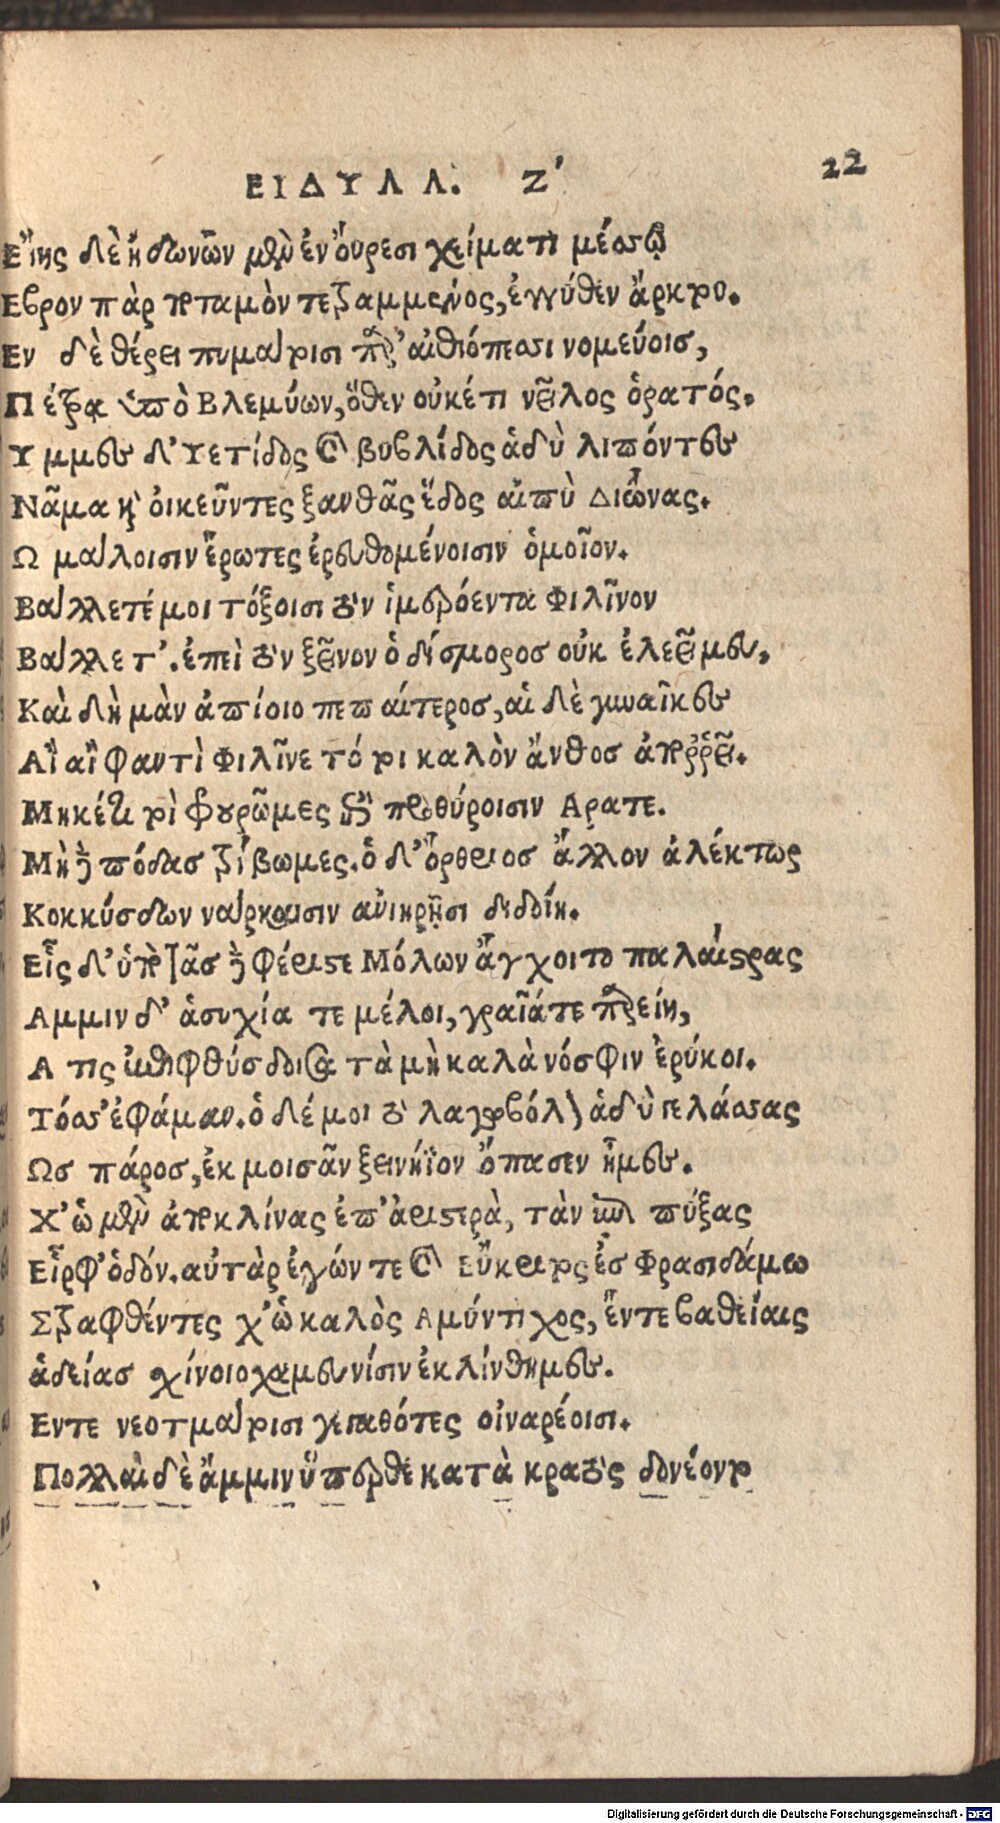 ΕΙΔΥΛΛ. Ζ΄ 22
Εἴης δὲ ἠδωνῶν μὲν ἐν οὔρεσι χείματι μέσσῳ
Εβρον πὰρ ποταμὸν τετραμμένος, ἐγγύθεν ἄρκτου.
Εν δὲ θέρει πυμάτοισι παρ' αἰθιόπεσσι νομεύοις,
Πέτρᾳ ὑπὸ Βλεμύων, ὅθεν οὐκέτι νεῖλος ὁρατός.
Υμμες δ' Υετίδος καὶ βυβλίδος ἁδὺ λιπόντες
Νᾶμα καὶ οἰκεῦντες ξανθᾶς ἕδος αἰπὺ Διώνας.
Ω μάλοισιν ἔρωτες ἐρευθομένοισιν ὁμοῖον.
Βάλλετέ μοι τόξοισι τὸν ἱμερόεντα Φιλῖνον
Βάλλετ'. ἐπεὶ τὸν ξεῖνον ὁ δύσμορος οὐκ ἐλεεῖ μευ,
Καὶ δὴ μὰν ἀπίοιο πεπαίτερος, αἱ δὲ γυναῖκες
Αἴ αἴ φαντὶ Φιλῖνε τό τοι καλὸν ἄνθος ἀπορρεῖ.
Μηκέτι τοι φρουρῶμες ἐπὶ προθύροισιν Αρατε.
Μὴ δὲ πόδας τρίβωμες. ὁ δ' ὄρθριος ἄλλον ἀλέκτωρ
Κοκκύσδων νάρκαισιν ἀνιηρῇσι διδοίη.
Εἷς δ' ὑπὸ τᾶσδε φέριστε Μόλων ἄγχοιτο παλαίστρας
Αμμιν δ' ἁσυχία τε μέλοι, γραῖά τε παρείη,
Α τις ἐπιφθύσδοισα τὰ μὴ καλὰ νόσφιν ἐρύκοι.
Τόσσ' ἐφάμαν. ὁ δέ μοι τὸ λαγωβόλον ἁδὺ γελάσσας
Ως πάρος, ἐκ μοισᾶν ξεινήϊον ὤπασεν ἦμεν.
Χ' ὡ μὲν ἀποκλίνας ἐπ' ἀριστερὰ, τὰν ἐπὶ πύξας
Εἷρφ' ὁδόν. αὐτὰρ ἐγών τε καὶ Εὔκριτος ἐσ Φρασιδάμω
Στραφθέντες χ' ὡ καλὸς Αμύντιχος, ἔντε βαθείαις
ἁδείας σχίνοιο χαμευνίσιν ἐκλίνθημες.
Εντε νεοτμάτοισι γεγαθότες οἰναρέοισι.
Πολλαὶ δὲ ἄμμιν ὕπερθε κατὰ κρατὸς δονέοντο
Digitalisierung gefördert durch die Deutsche Forschungsgemeinschaft - DFG